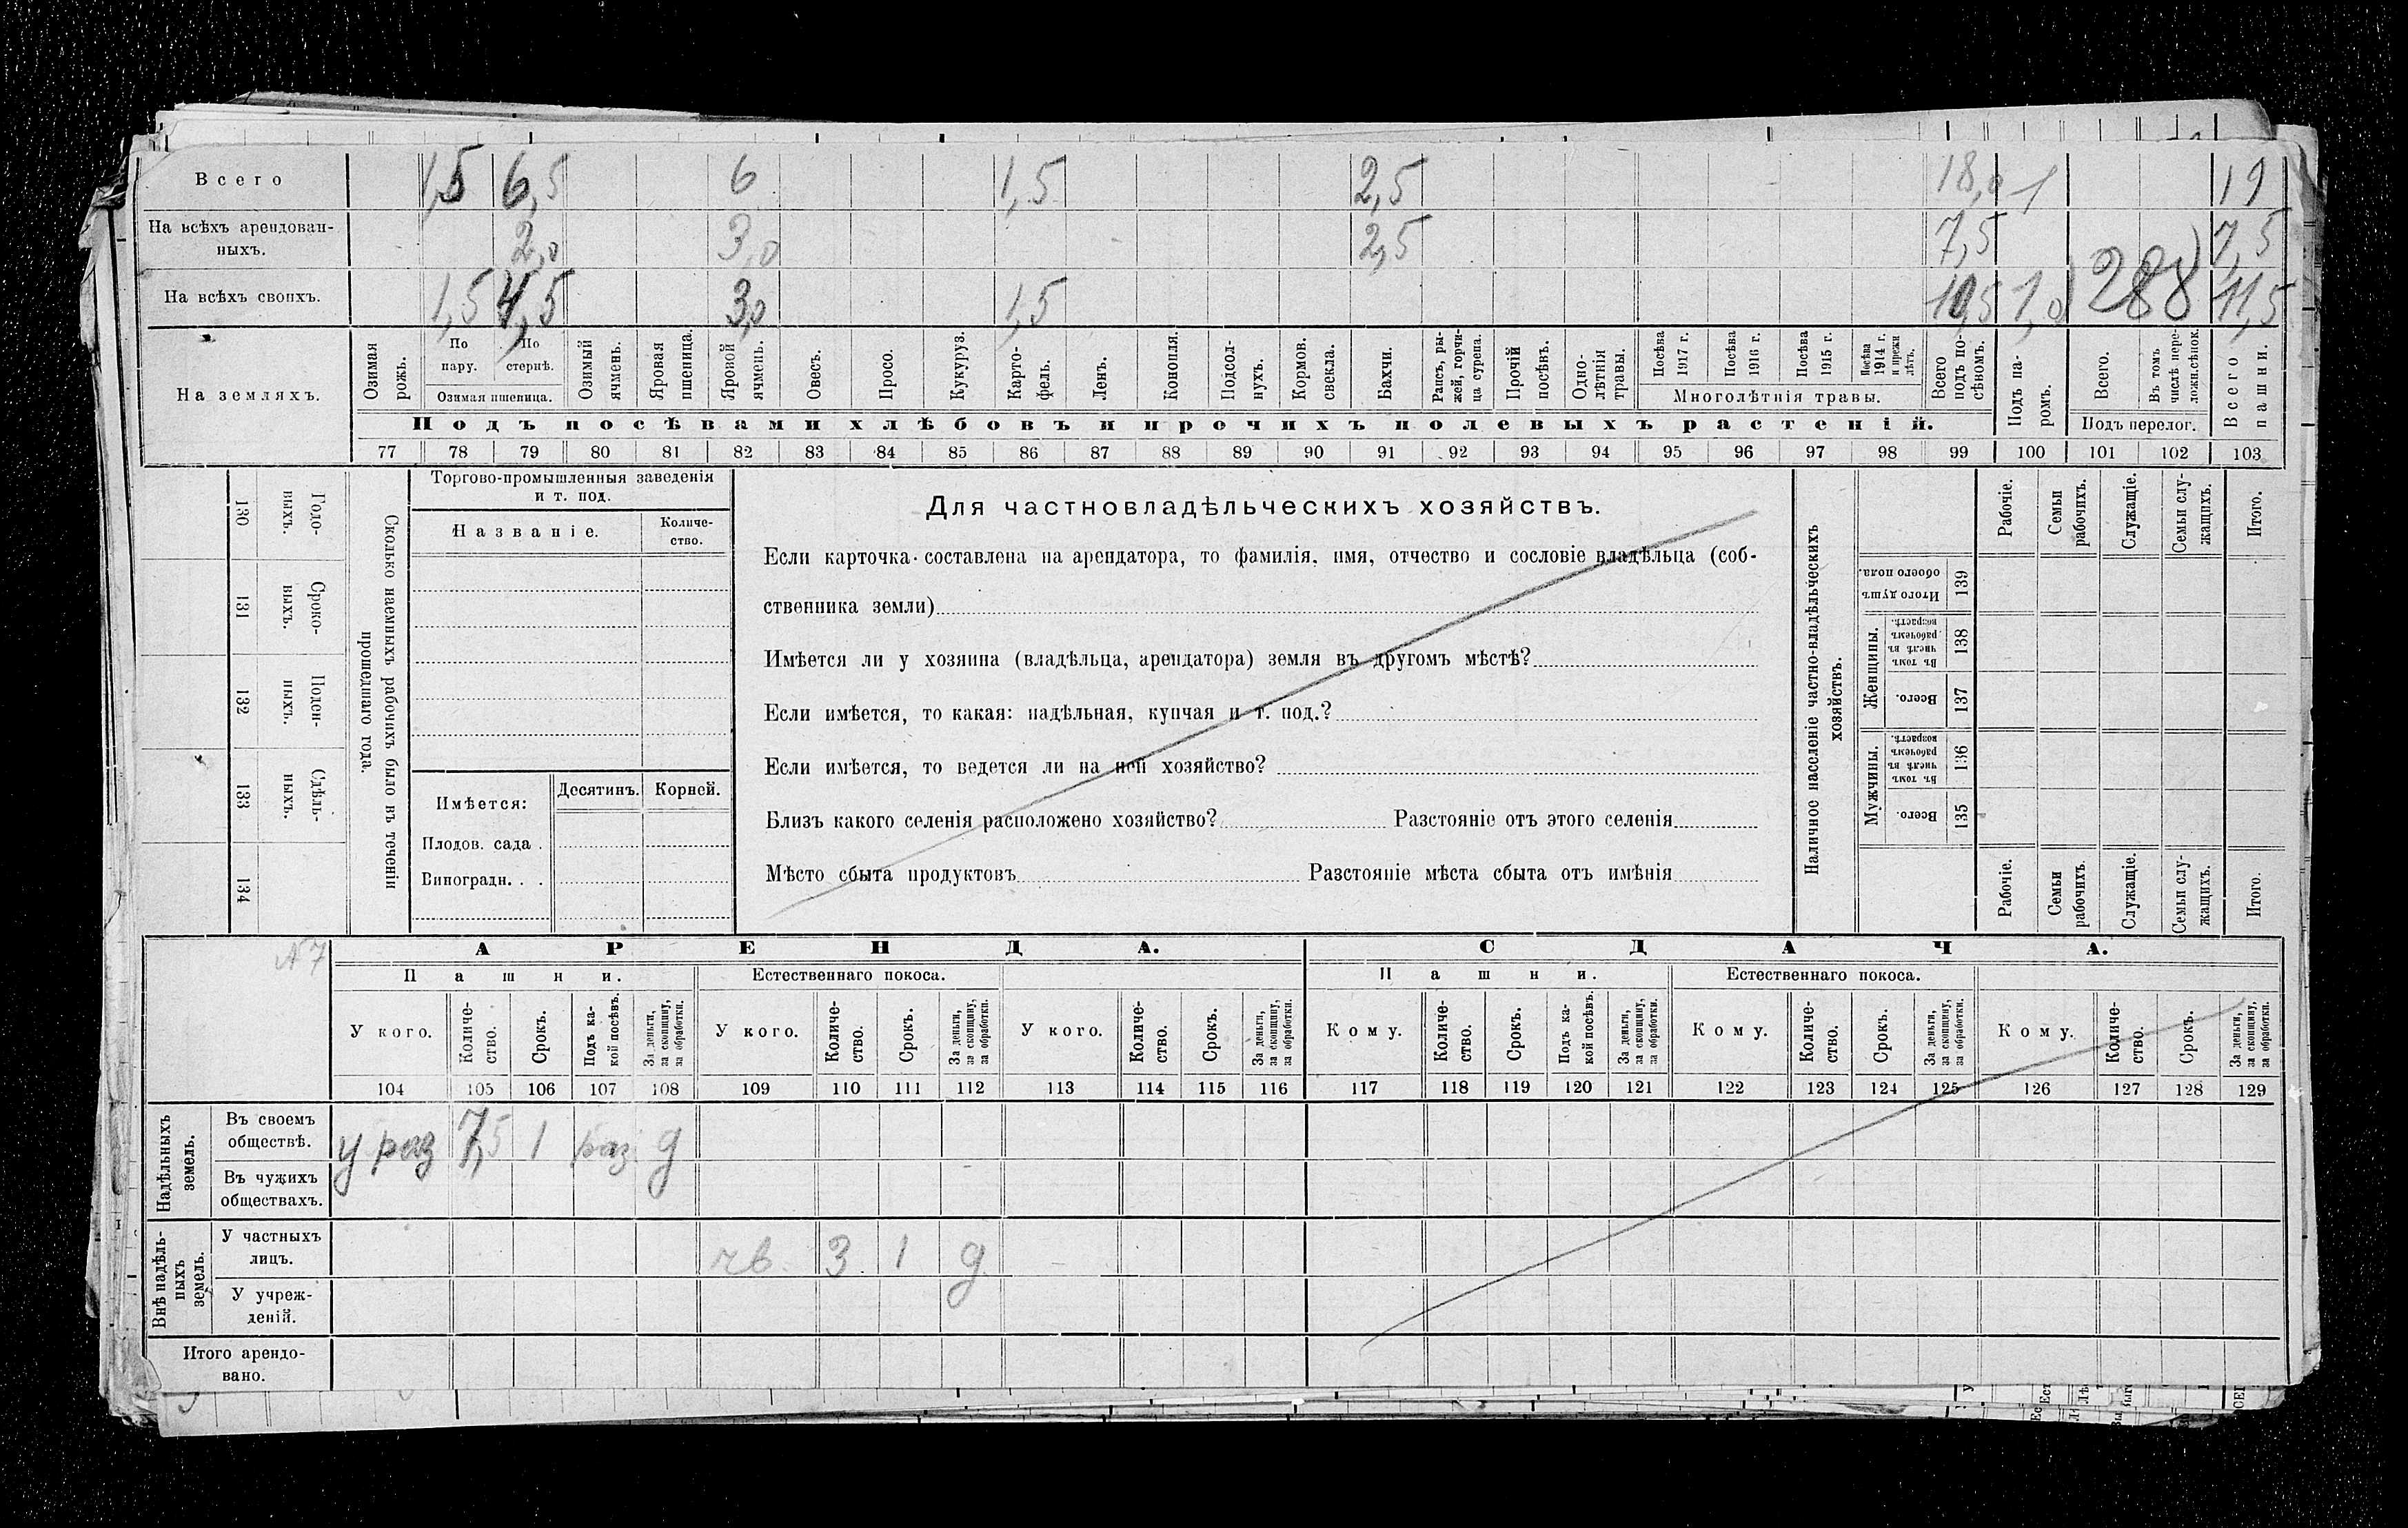 Всего 1,5 6,5 6 1,5 2,5 18,0 1 19
На всѣхъ арендован-
ныхъ. 2,0 3,0 2,5 7,5 7,5
На всѣхъ своихъ. 1,5 4,5 3,0 1,5 10,5 1,0 288 11,5
На земляхъ.
Озимая рожь.
По пару.
По стернѣ.
Озимая пшеница.
Озимый ячмень.
Яровая пшеница.
Яровой ячмень.
Овесъ.
Просо.
Кукуруз.
Карто-
фель.
Ленъ.
Конопля.
Подсол-
нухъ.
Кормов.
свекла.
Бахчи.
Рапсъ, ры-
жей, горчи-
ца сурепа.
Прочій
посѣвъ.
Одно-
лѣтнія
травы.
Посѣва
1917 г.
Посѣва
1916 г.
Посѣва
1915 г.
Посѣва
1914 г.
и прежн
лѣтъ.
Многолѣтнія травы.
Всего
подъ по-
сѣвомъ.
Подъ па-
ромъ.
Всего.
Въ томъ
числѣ пере-
ложн.сѣнок.
Подъ перелог.
Всего
пашни.
Подъ посѣвами хлѣбовъ и прочихъ полевыхъ растеній.
77 78 79 80 81 82 83 84 85 86 87 88 89 90 91 92 93 94 95 96 97 98 99 100 101 102 103
Сколько наемныхъ рабочихъ было въ теченіи
прошедшаго года.
Годо-
выхъ.
130
Сроко-
ныхъ.
131
Поден-
ныхъ.
132
Сдѣль-
ныхъ.
133
134
Торгово-промышленныя заведенія
и т. под.
Названіе.
Количе-
ство.
Имѣется:
Десятинъ.
Корней.
Плодов. сада .
Виноградн. . .
Для частновладѣльческихъ хозяйствъ.
Если карточка составлена на арендатора, то фамилія, имя, отчество и сословіе владѣльца (соб-
ственника земли)
Имѣется ли у хозяина (владѣльца, арендатора) земля въ другомъ мѣстѣ?
Если имѣется, то какая: надѣльная, купчая и т. под.?
Если имѣется, то ведется ли на ней хозяйство?
Близъ какого селенія расположено хозяйство? Разстояніе отъ этого селенія
Мѣсто сбыта продуктовъ Разстояніе мѣста сбыта отъ имѣнія
Наличное населеніе частно-владѣльческихъ
хозяйствъ.
Рабочіе.
Семьи
рабочихъ.
Служащіе.
Семьи слу-
жащихъ.
Итого.
Итого душъ
обоего пола.
139
Женщины.
Въ томъ
числѣ въ
рабочемъ
возрастѣ.
138
Всего.
137
Мужчины.
Въ томъ
числѣ въ
рабочемъ
возрастѣ.
136
Всего.
135
Рабочіе.
Семьи
рабочихъ.
Служащіе.
Семьи слу-
жащихъ.
Итого.
№ 7
АРЕНДА.
СДАЧА.
Пашни.
Естественнаго покоса.
Пашни.
Естественнаго покоса.
У кого.
Количе-
ство.
Срокъ.
Подъ ка-
кой посѣвъ.
За деньги,
за скопщину,
за обработки.
У кого.
Количе-
ство.
Срокъ.
За деньги,
за скопщину,
за обработки.
У кого.
Количе-
ство.
Срокъ.
За деньги,
за скопщину,
за обработки.
Кому.
Количе-
ство.
Срокъ.
Подъ ка-
кой посѣвъ.
За деньги,
за скопщину,
за обработки.
Кому.
Количе-
ство.
Срокъ.
За деньги,
за скопщину,
за обработки.
Кому.
Количе-
ство.
Срокъ.
За деньги,
за скопщину,
за обработки.
104 105 106 107 108 109 110 111 112 113 114 115 116 117 118 119 120 121 122 123 124 125 126 127 128 129
Надѣльныхъ
земель.
Въ своемъ
обществѣ.
у раз 7,5 1 раз д
Въ чужихъ
обществахъ.
Внѣ надѣль-
ныхъ
земель.
У частныхъ
лицъ.
чв. 3 1 д
У учреж-
деній.
Итого арендо-
вано.